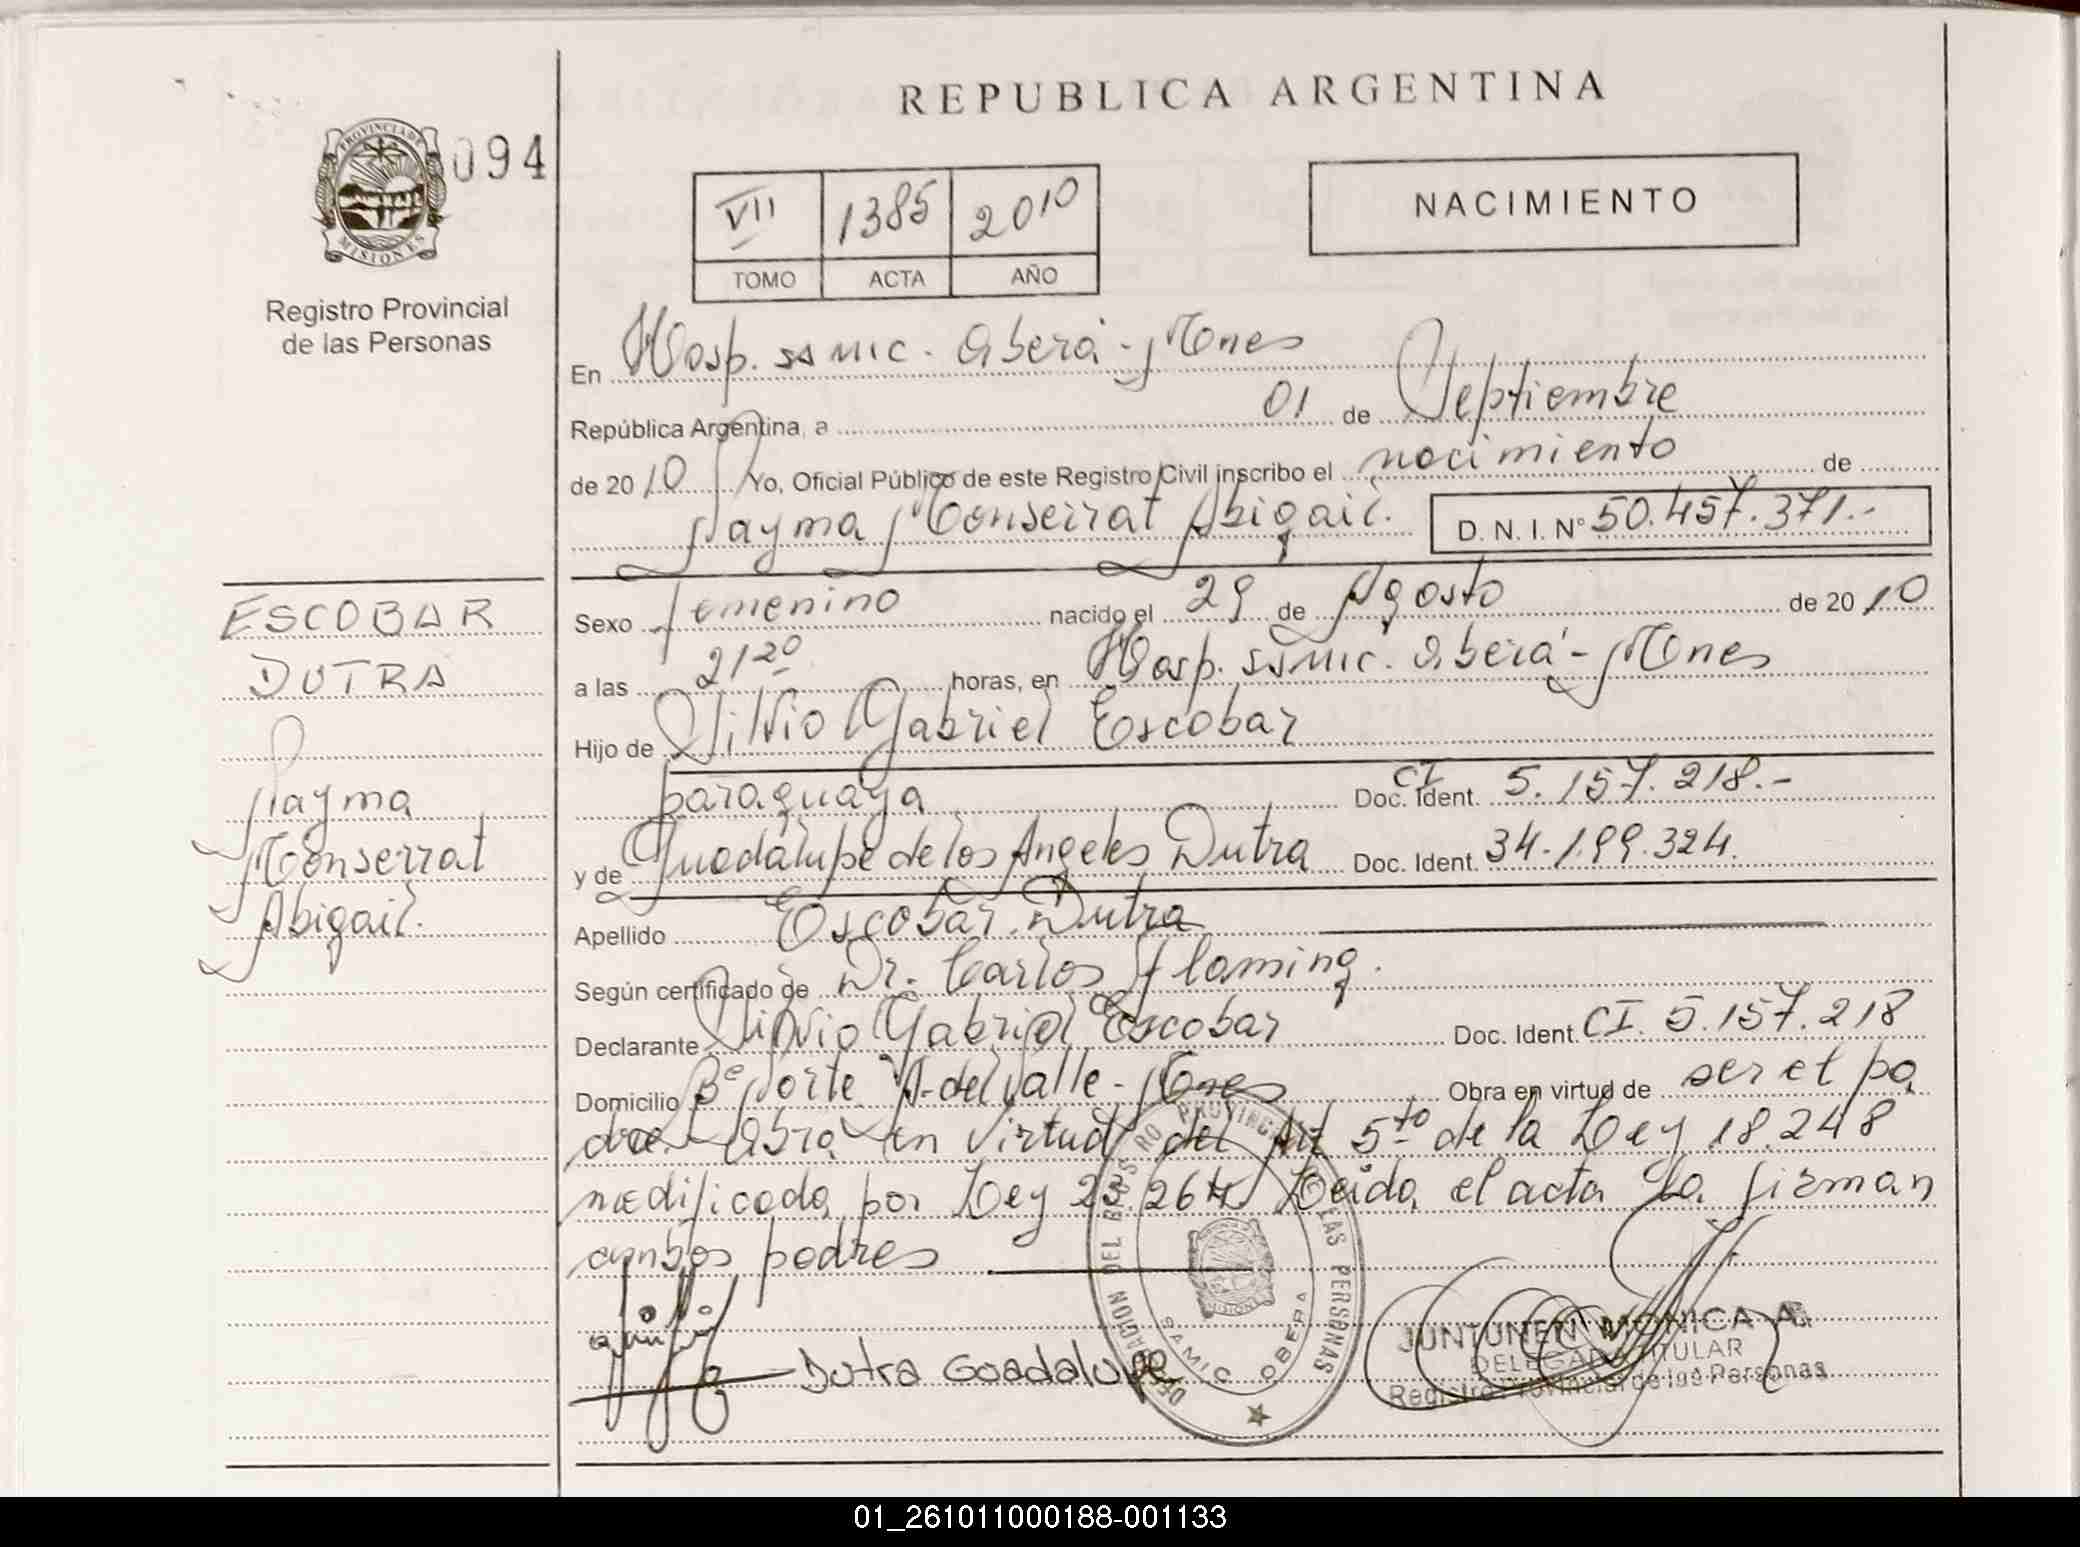 REPUBLICA ARGENTINA
PROVINCIA DE
MISIONES
094
Registro Provincial
de las Personas
VII 1385 2010
TOMO ACTA AÑO
NACIMIENTO
En Hosp. SAMIC. Oberá - Mnes
República Argentina, a 01 de Septiembre
de 2010 Yo, Oficial Público de este Registro Civil inscribo el nacimiento de
Nayma Monserrat Abigail. D. N. I. Nº 50.457.371.-
ESCOBAR
DUTRA
Nayma
Monserrat
Abigail.
Sexo femenino nacido el 29 de Agosto de 2010
a las 21 20 horas, en Hosp. SAMIC. Oberá - Mnes
Hijo de Silvio Gabriel Escobar
paraguaya Doc. Ident. CI 5.157.218.-
y de Guadalupe de los Angeles Dutra Doc. Ident. 34.199.324.
Apellido Escobar Dutra
Según certificado de Dr. Carlos Flaming.
Declarante Silvio Gabriel Escobar Doc. Ident. CI. 5.157.218
Domicilio Bº Norte A. del Valle - Mnes Obra en virtud de ser el pa
dre Obra en virtud del Art 5to de la Ley 18.248
modificada por Ley 23.264 Leida el acta la firman
ambos padres
Dutra Guadalupe
PROVINCIAL DE LAS PERSONAS
SAMIC OBERA
JUNTUNEN MONICA A.
DELEGADA TITULAR
Registro Provincial de las Personas
01_261011000188-001133